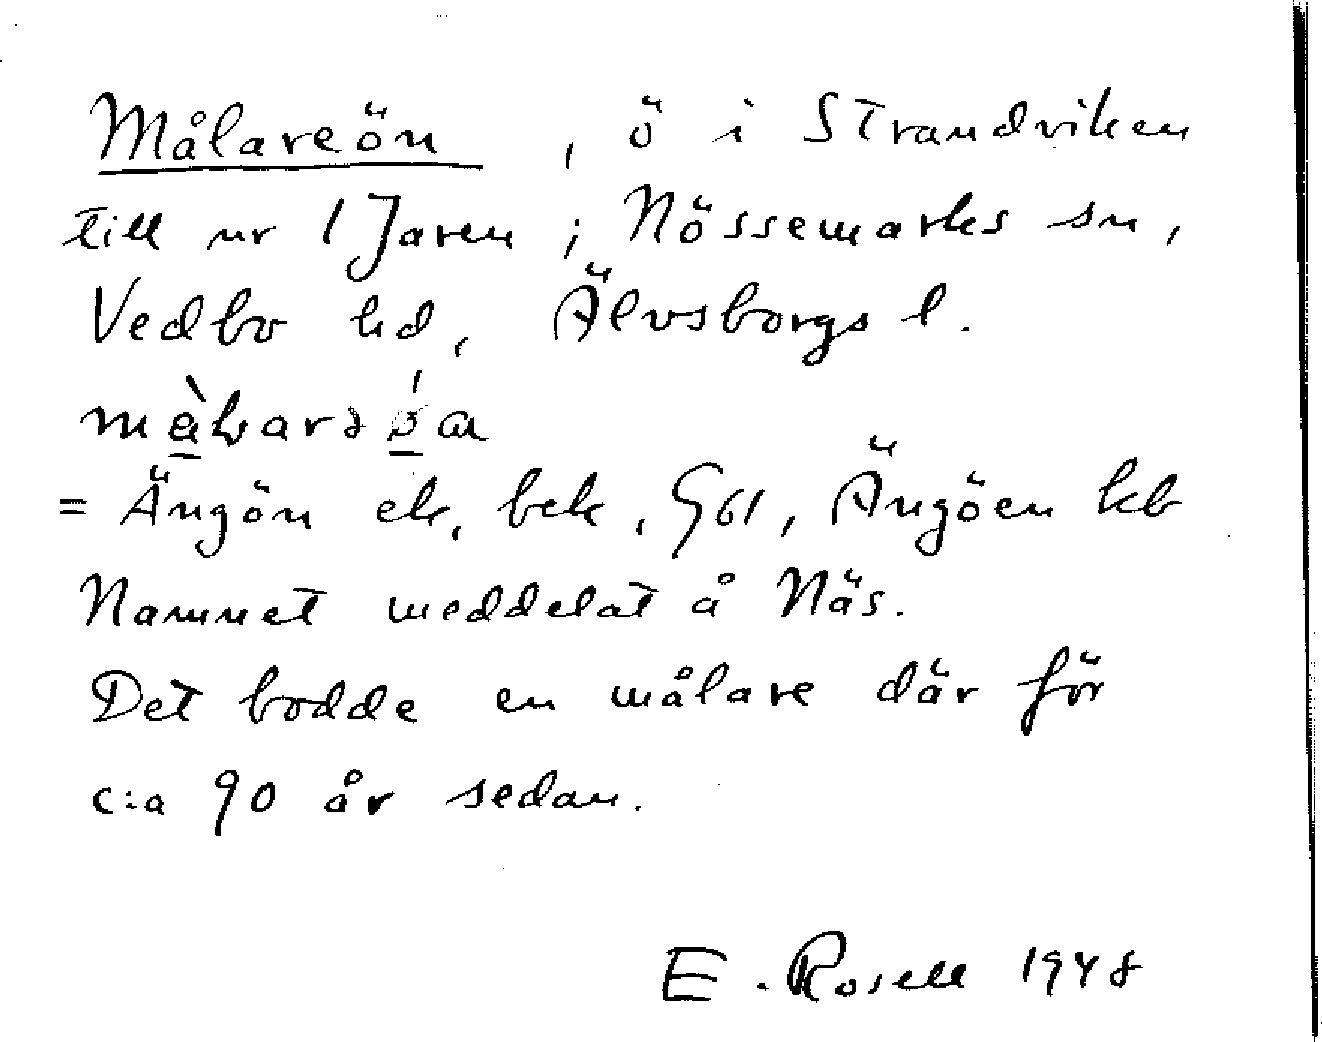 Målareön, ö i Strandviken
till nr 1 Jaren i Nössemarks sn,
Vedbo hd, Älvsborgs l.
= Ängön ek. bek. G61, Ängöen kb
Namnet meddelat å Näs.
Det bodde en målare där för
c:a 90 år sedan.
E. Rosell 1948